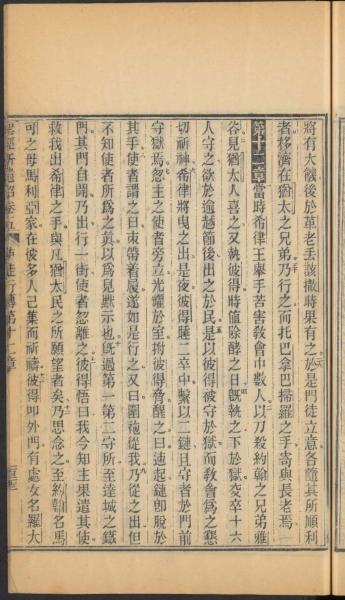 將有大饑後於革老丢該撒時果有之於是門徒立意各隨其所順利
者移濟在猶太之兄弟乃行之而托巴拿巴掃羅之手寄與長老焉
第十二章當時希律王舉手苦害教會中數人以刀殺約翰之兄弟雅
各見猶太人喜之又執彼得時值除酵之日旣執之下於獄交卒十六
人守之欲於逾越節後出之於民是以彼得被守於獄而教會為之懇
切祈神希律將曳之出是夜彼得睡二卒中繫以二鏈且守者於門前
守獄焉忽主之使者旁立光耀於室拊彼得脅醒之曰速起鏈卽脫於
其手使者謂之曰束帶着屨遂如是行之又曰圍袍從我乃從之出但
不知使者所為之真以為見默示也旣過第一第二守所至達城之鐵
門其門自開乃出行一街使者忽離之彼得悟曰我今知主果遣其使
救我出希律之手與凡猶太民之所願望者矣乃思念之至約翰名馬
可之母馬利亞家在彼多人已集而祈禱彼得叩外門有處女名羅大
卷五 使徒行傳第十二章